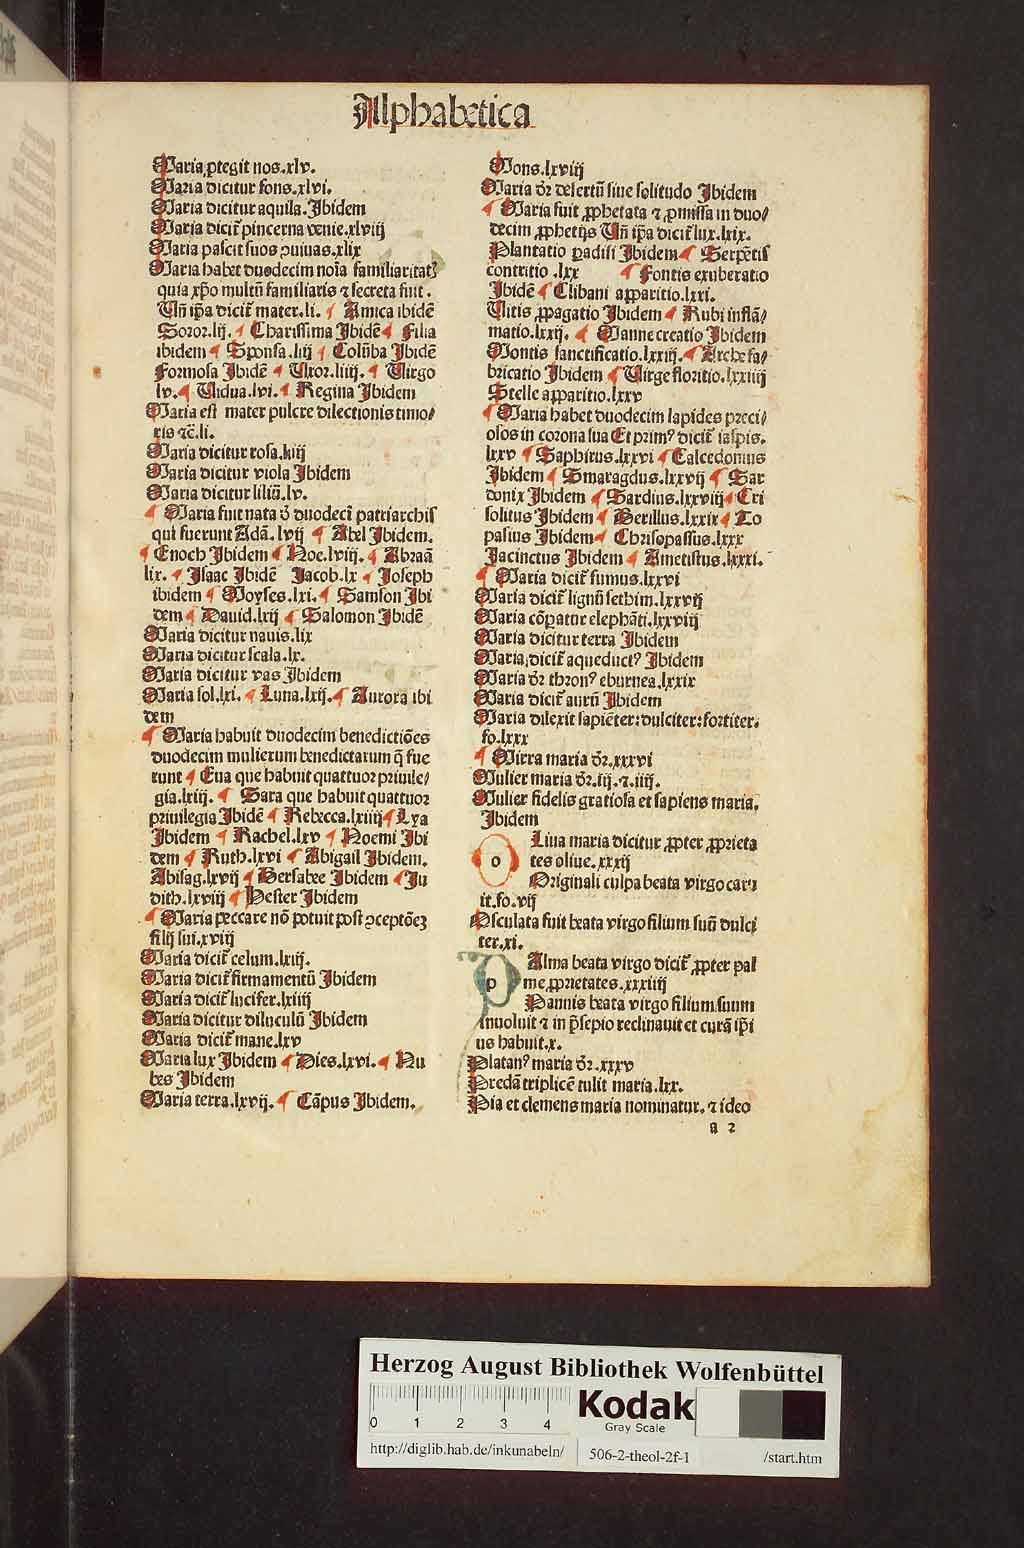 Alphabetica
Maria ꝓtegit nos.xlv.
Maria dicitur fons.xlvi.
Maria dicitur aquila.Ibidem
Maria dicit᷑ pincerna venie.xlviij
Maria pascit suos ꝯuiuas.xlix
Maria habet duodecim noīa familiaritat
quia xp̄o multū familiaris ⁊ secreta fuit.
Un̄ ip̄a dicit᷑ mater.li. ¶ Amica ibidē
Soror.lij. ¶ Charissima Ibidē ¶ Filia
ibidem ¶ Sponsa.liij ¶ Colūba Ibidē
Formosa Ibidē ¶ Uxor.liiij. ¶ Uirgo
lv. ¶ Uidua.lvi. ¶ Regina Ibidem
Maria est mater pulcre dilectionis timo/
ris ⁊c̄.li.
Maria dicitur rosa.liiij
Maria dicitur viola Ibidem
Maria dicitur liliū.lv.
¶ Maria fuit nata d̄ duodecī patriarchis
qui fuerunt Adā.lvij ¶ Abel Ibidem.
¶ Enoch Ibidem ¶ Noe.lviij. ¶ Abraā
lix. ¶ Isaac Ibidē Jacob.lx ¶ Joseph
ibidem ¶ Moyses.lxi. ¶ Samson Ibi
dem ¶ Dauid.lxij ¶ Salomon Ibidē
Maria dicitur nauis.lix
Maria dicitur scala.lx.
Maria dicitur vas Ibidem
Maria sol.lxi. ¶ Luna.lxij. ¶ Aurora ibi
dem
¶ Maria habuit duodecim benedictiōes
duodecim mulierum benedictarum q̄ fue
runt ¶ Eua que habuit quattuor priuile/
gia.lxiij. ¶ Sara que habuit quattuor
priuilegia Ibidē ¶ Rebecca.lxiiij ¶ Lya
Ibidem ¶ Rachel.lxv ¶ Noemi Ibi
dem ¶ Ruth.lxvi ¶ Abigail Ibidem.
Abisag.lxvij ¶ Bersabee Ibidem ¶ Ju
dith.lxviij ¶ Hester Ibidem
¶ Maria peccare nō potuit post ꝯceptōeꝫ
filij sui.xviij
Maria dicit᷑ celum.lxiij.
Maria dicit᷑ firmamentū Ibidem
Maria dicit᷑ lucifer.lxiiij
Maria dicitur diluculū Ibidem
Maria dicit᷑ mane.lxv
Maria lux Ibidem ¶ Dies.lxvi. ¶ Nu
bes Ibidem
Maria terra.lxvij. ¶ Cāpus Ibidem.
Mons.lxviij
Maria dr̄ desertū siue solitudo Ibidem
¶ Maria fuit ꝓphetata ⁊ ꝓmissa in duo/
decim ꝓphetijs Un̄ ip̄a dicit᷑ lux.lxix.
Plantatio padisi Ibidem ¶ Serpētis
contritio .lxx ¶ Fontis exuberatio
Ibidē ¶ Clibani apparitio.lxxi.
Uitis ꝓpagatio Ibidem ¶ Rubi inflā/
matio.lxxij. ¶ Manne creatio Ibidem
Montis sanctificatio.lxxiij. ¶ Arche fa/
bricatio Ibidem ¶ Uirge floritio.lxxiiij
Stelle apparitio.lxxv
¶ Maria habet duodecim lapides preci/
osos in corona sua Et primꝰ dicit᷑ iaspis.
lxxv ¶ Saphirus.lxxvi ¶ Calcedonius
Ibidem ¶ Smaragdus.lxxvij ¶ Sar
donix Ibidem ¶ Sardius.lxxviij ¶ Cri
solitus Ibidem ¶ Berillus.lxxix ¶ To
pasius Ibidem ¶ Chrisopassus.lxxx
Jacinctus Ibidem ¶ Ametistus.lxxxi.
¶ Maria dicit᷑ fumus.lxxvi
Maria dicit᷑ lignū sethim.lxxvij
Maria cōpatur elephāti.lxxviij
Maria dicitur terra Ibidem
Maria dicit᷑ aqueductꝰ Ibidem
Maria dr̄ thronꝰ eburnea.lxxix
Maria dicit᷑ aurū Ibidem
Maria dilexit sapiēter:dulciter:fortiter.
fo.lxxx
¶ Mirra maria dr̄.xxxvi
Mulier maria dr̄.iij.⁊.iiij.
Mulier fidelis gratiosa et sapiens maria.
Ibidem
o Liua maria dicitur ꝓpter ꝓprieta
tes oliue.xxxij
Originali culpa beata virgo caru
it.fo.vij
Osculata fuit beata virgo filium suū dulci
ter.xi.
p Alma beata virgo dicit᷑ ꝓpter pal
me ꝓprietates.xxxiiij
Pannis beata virgo filium suum
inuoluit ⁊ in p̄sepio reclinauit et curā ip̄i
us habuit.x.
Platanꝰ maria dr̄.xxxv
Predā triplicē tulit maria.lxx.
Pia et clemens maria nominatur.⁊ ideo
a 2
Herzog August Bibliothek Wolfenbüttel
0 1 2 3 4
Kodak
Gray Scale
http://diglib.hab.de/inkunabeln/ 506-2-theol-2f-1 /start.htm